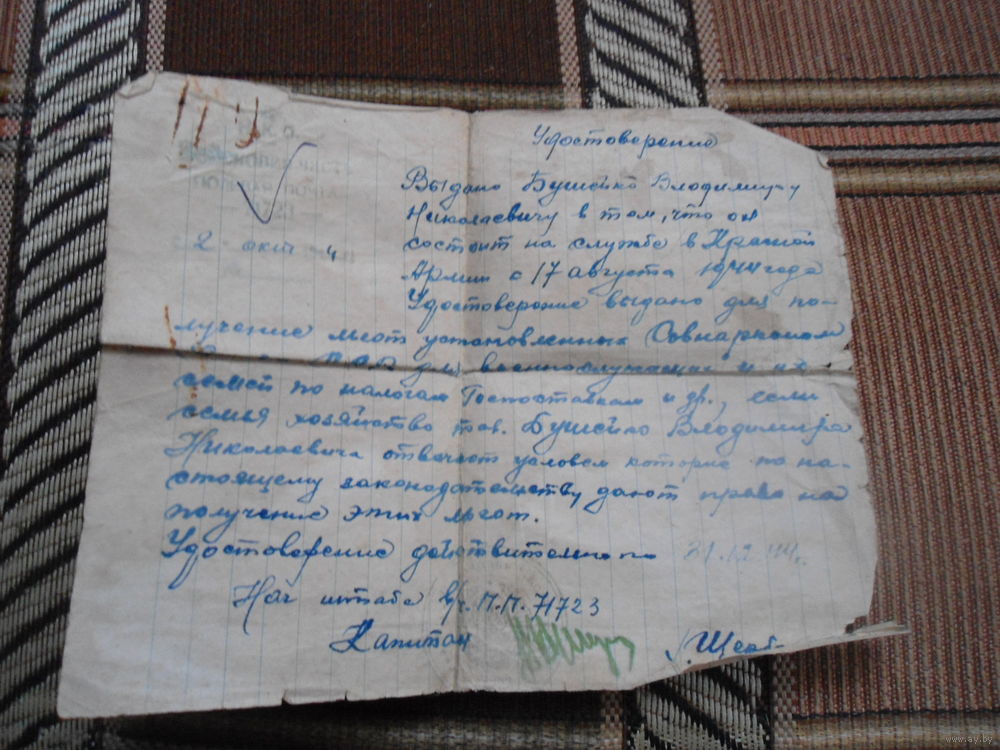 Удостоверение
Выдано Бушейко Владимиру
Николаевичу в том, что он
состоит на службе в Красной
Армии с 17 августа 1944 года
Удостоверение выдано для по-
2 окт 4
лучение льгот установленных Совнаркомом
для военнослужащих и их
семей по налогам Госпоставкам и др., если
семья хозяйство тов. Бушейко Владимира
Николаевича отвечает условем которие по на-
стоящему законодательству дают право на
получение этих льгот.
Удостоверение действительно по 31.12.44г.
Нач штаба в/ч. П.П. 71723
Капитан
www.ay.by